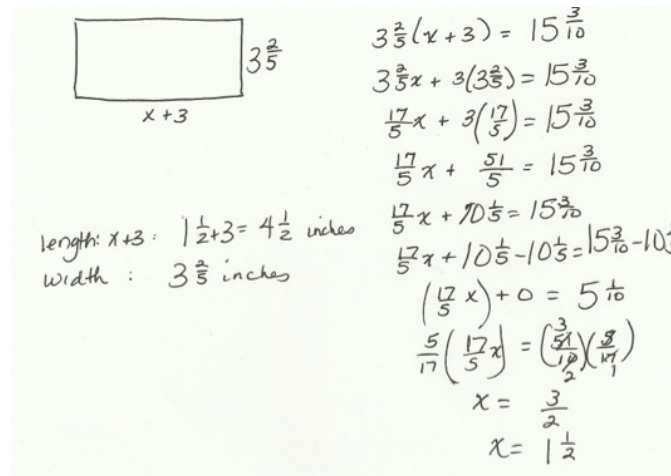 3 2/5
x + 3
length: x+3 : 1 1/2 + 3 = 4 1/2 inches
width : 3 2/5 inches
3 2/5 (x + 3) = 15 3/10
3 2/5 x + 3(3 2/5) = 15 3/10
17/5 x + 3(17/5) = 15 3/10
17/5 x + 51/5 = 15 3/10
17/5 x + 10 1/5 = 15 3/10
17/5 x + 10 1/5 - 10 1/5 = 15 3/10 - 10
(17/5 x) + 0 = 5 1/10
5/17 (17/5 x) = (51/10)(5/17) 3 2 1
x = 3/2
x = 1 1/2